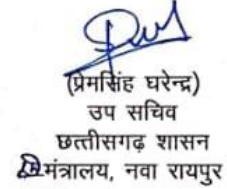 (प्रेमसिंह घरेन्द्र)
उप सचिव
छत्तीसगढ़ शासन
मंत्रालय, नवा रायपुर